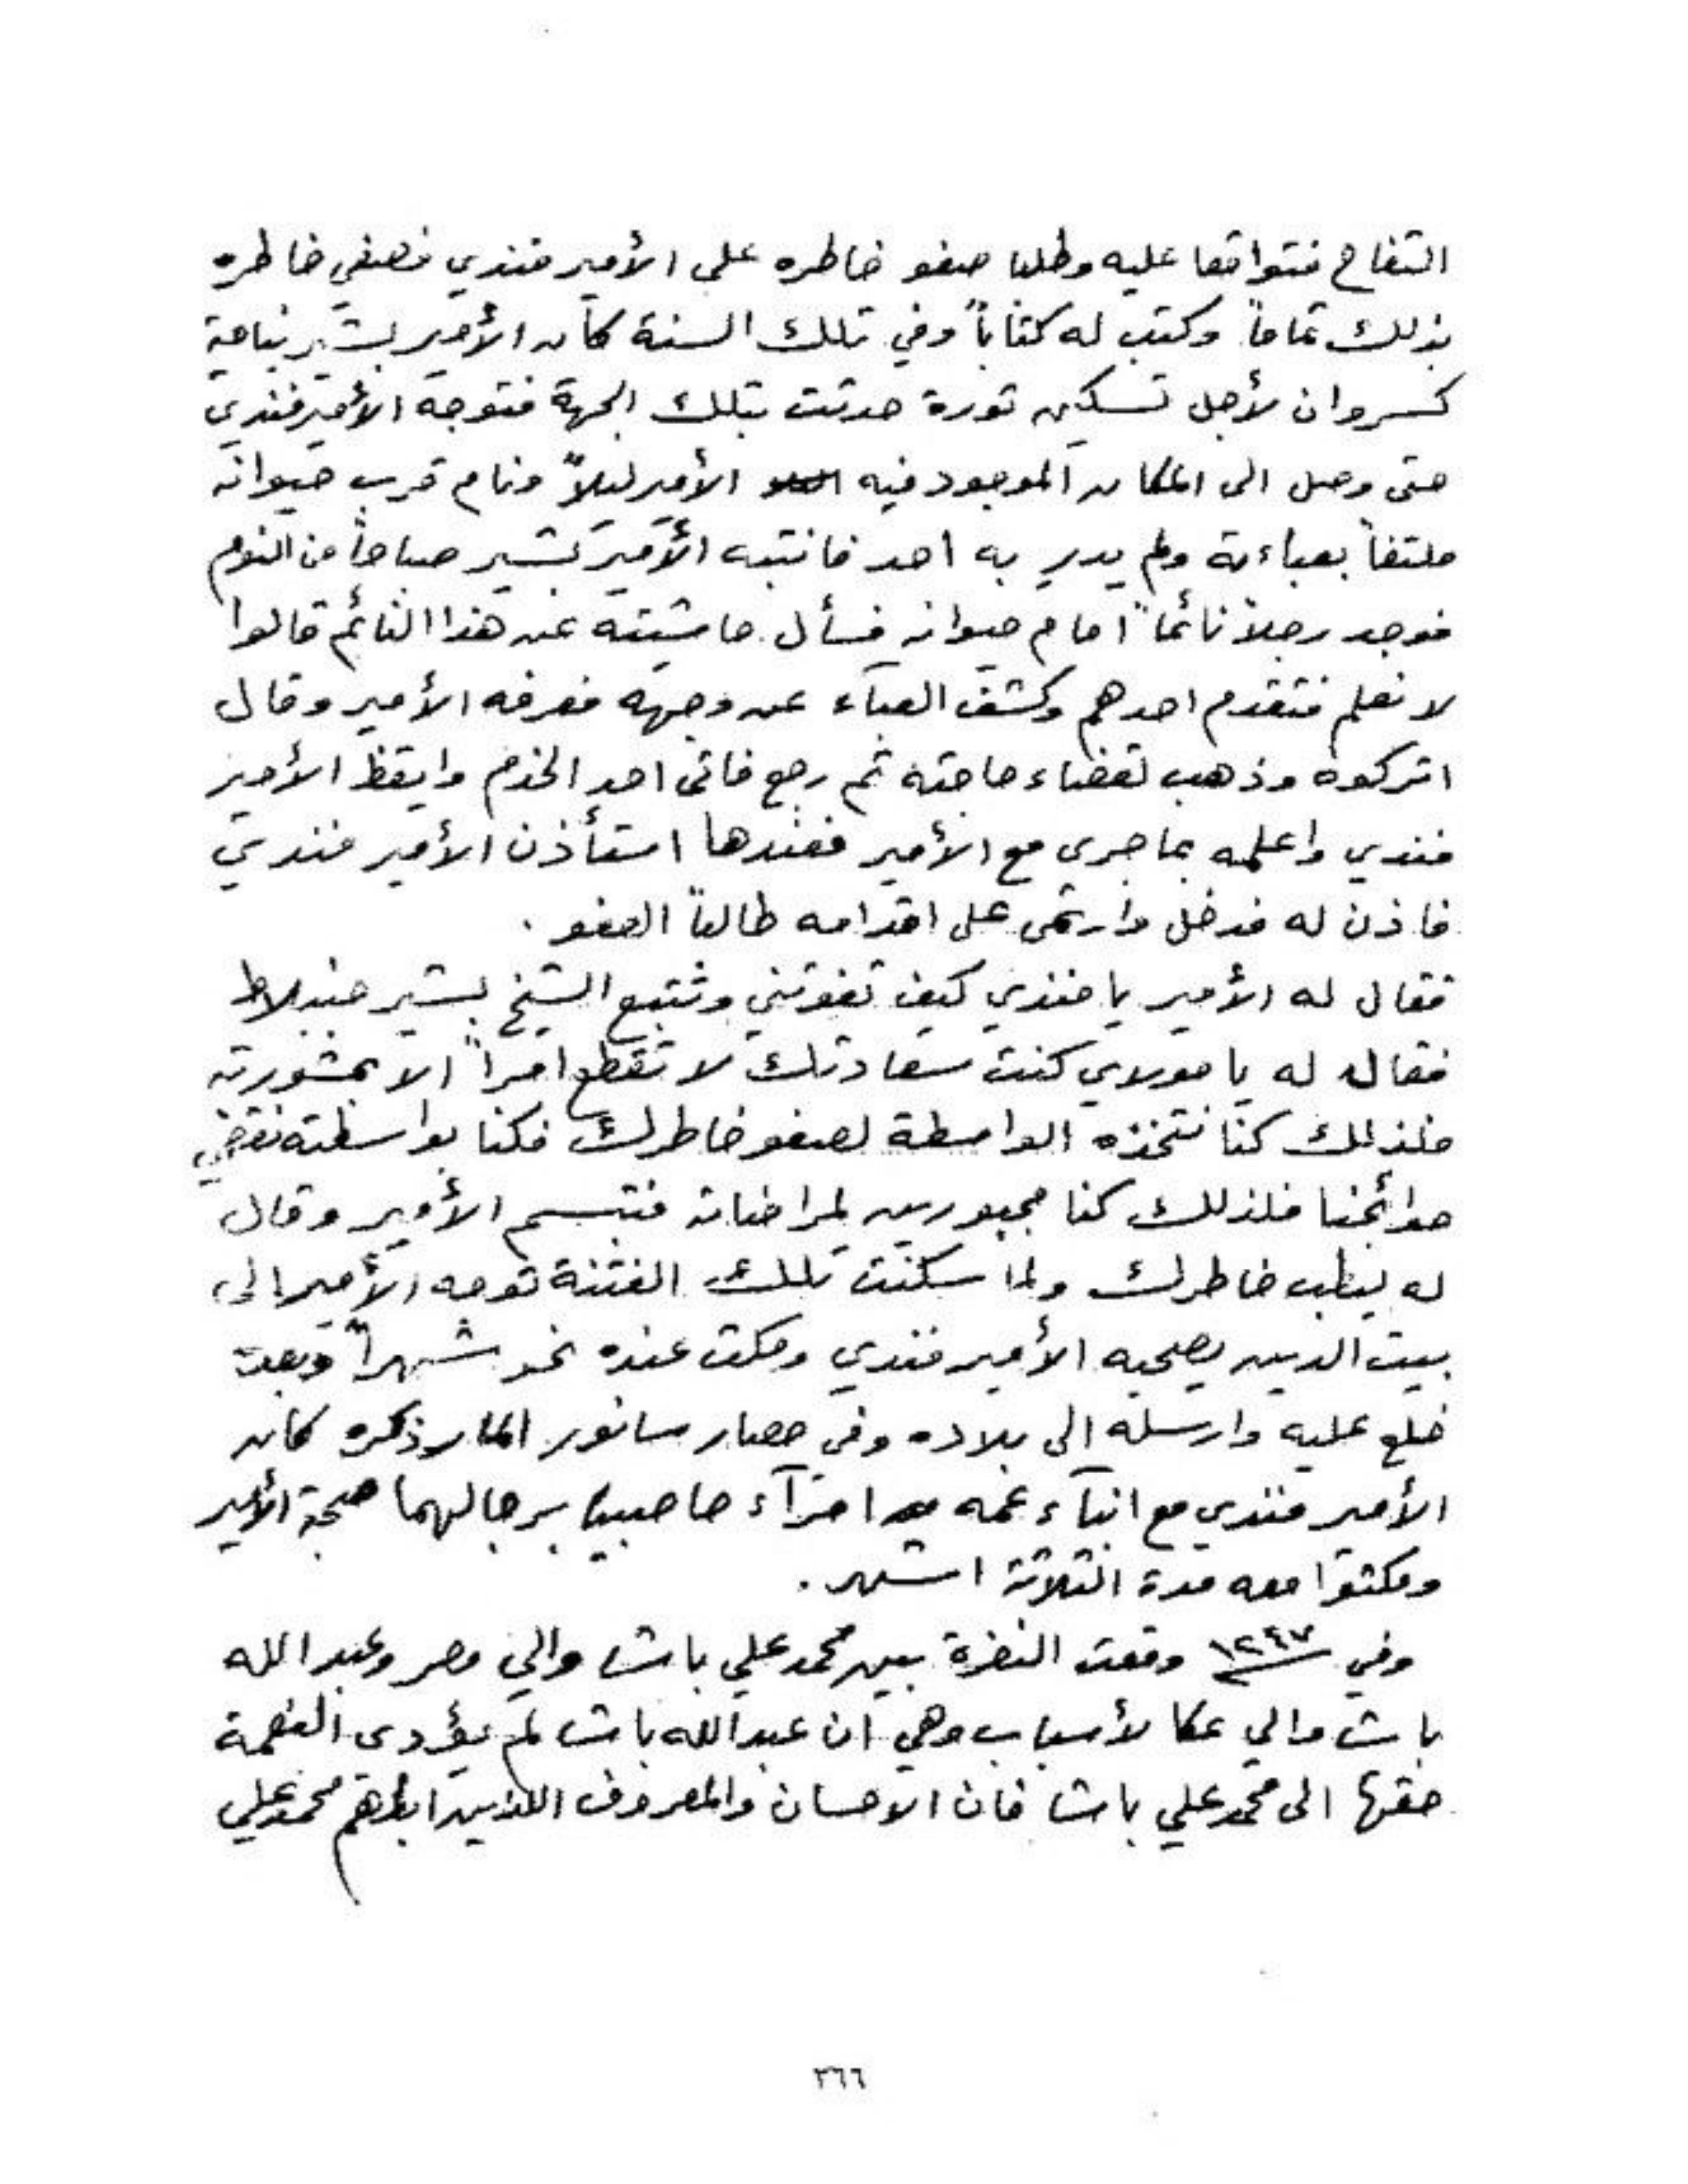 التفاح فتواقعا عليه وطلبا صفو خاطره على الأمير فندي فصفي خاطره
بذلك تماماً وكتب له كتاباً وفي تلك السنة كان الأمير بشير بناحية
كسروان لأجل تسكين ثورة حدثت بتلك الجهة فتوجه الأمير فندي
حتى وصل الى المكان الموجود فيه الأمير ليلاً ونام قرب صيوانه
ملتفاً بعباءية ولم يدرِ به احد فانتبه الأمير بشير صباحاً من النوم
فوجد رجلاً نائماً امام صيوانه فسأل حاشيته عن هذا النائم قالوا
لا نعلم فتقدم احدهم وكشف العبآء عن وجهه فعرفه الأمير وقال
اتركوه وذهب لقضاء حاجته ثم رجع فاتى احد الخدم وايقظ الأمير
فندي واعلمه بما جرى مع الأمير فعندها استأذن الأمير فندي
فاذن له فدخل وارتمى على اقدامه طالباً العفو .
فقال له الأمير يا فندي كيف تفوتني وتتبع الشيخ بشير جنبلاط
فقال له يا مولاي كنت سعادتك لا تقطع امراً الا بمشورته
فلذلك كنا نتخذه الواسطة لصفو خاطرك فكنا بواسطته نقضي
حوائجنا فلذلك كنا مجبورين لمراضاته فتبسم الأمير وقال
له ليطب خاطرك ولما سكنت تلك الفتنة توجه الأمير الى
بيت الدين يصحبه الأمير فندي ومكث عنده نحو شهراً وبعده
خلع عليه وارسله الى بلاده وفي حصار سانور المار ذكره كان
الأمير فندي مع ابنآء عمه امرآء حاصبيا برجالهما صحبة الأمير
ومكثوا معه مدة الثلاثة اشهر .
وفي ١٢٤٧ وقعت النفرة بين محمد علي باشا والي مصر وعبد الله
باشا والي عكا لأسباب وهي ان عبد الله باشا لم يؤدى النعمة
حقها الى محمد علي باشا فان الاحسان والمعروف اللذين محمد علي
٣٦٦